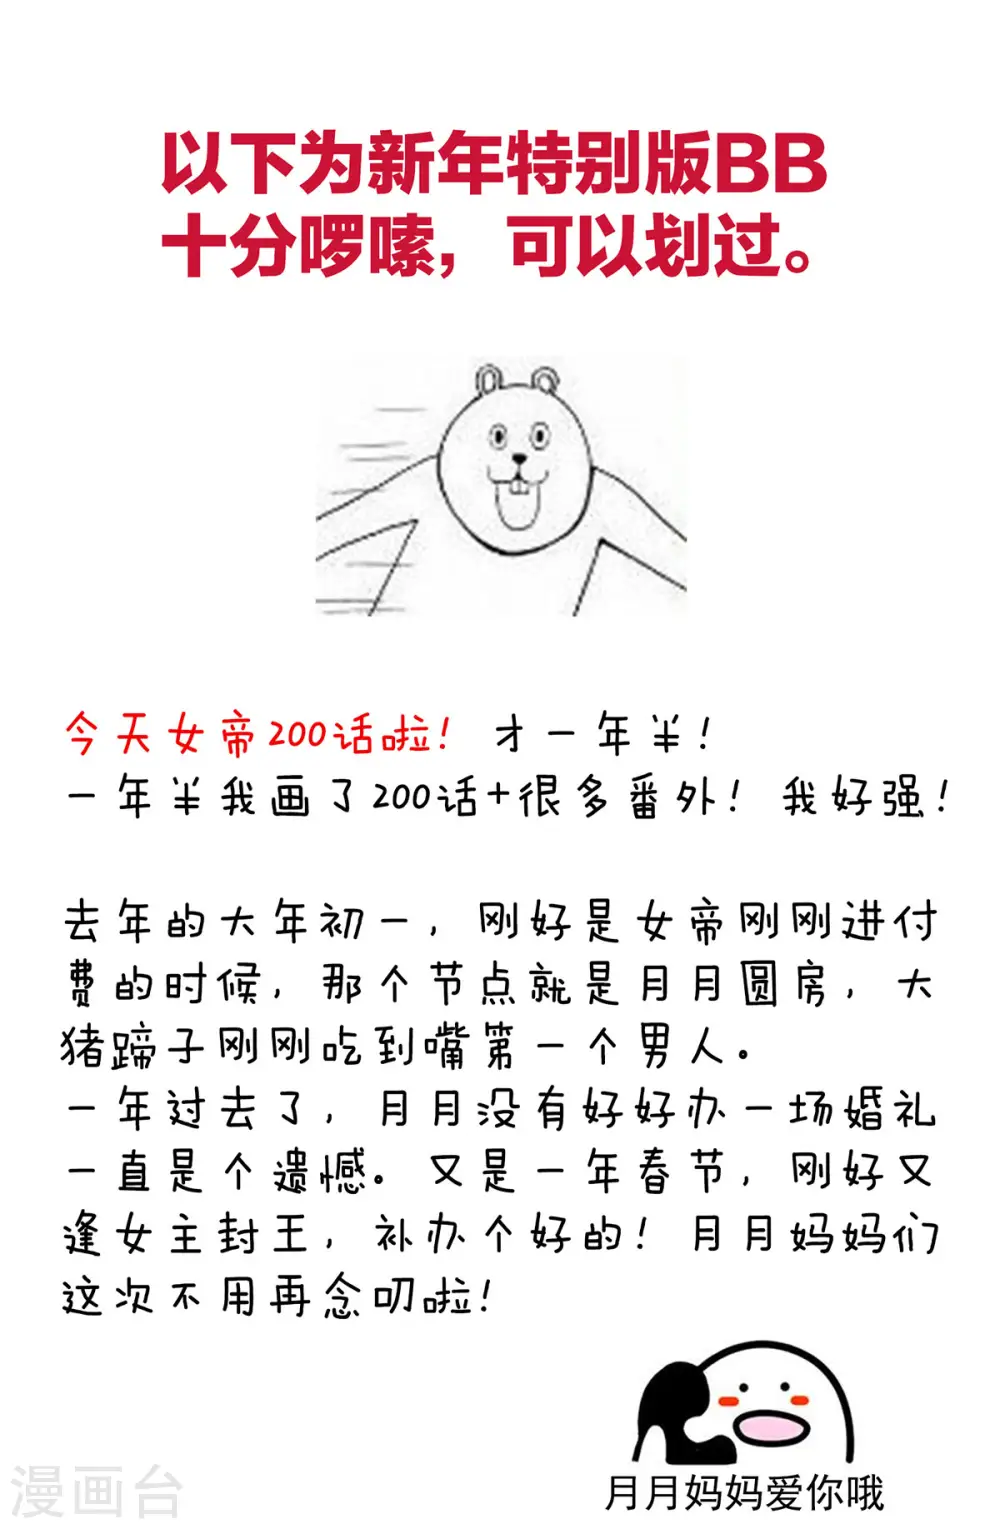 以下为新年特别版BB
十分啰嗦，可以划过。
今天女帝200话啦！才一年半！
一年半我画了200话+很多番外！我好强！
去年的大年初一，刚好是女帝刚刚进付
费的时候，那个节点就是月月圆房，大
猪蹄子刚刚吃到嘴第一个男人。
一年过去了，月月没有好好办一场婚礼
一直是个遗憾。又是一年春节，刚好又
逢女主封王，补办个好的！月月妈妈们
这次不用再念叨啦！
月月妈妈爱你哦
漫画台